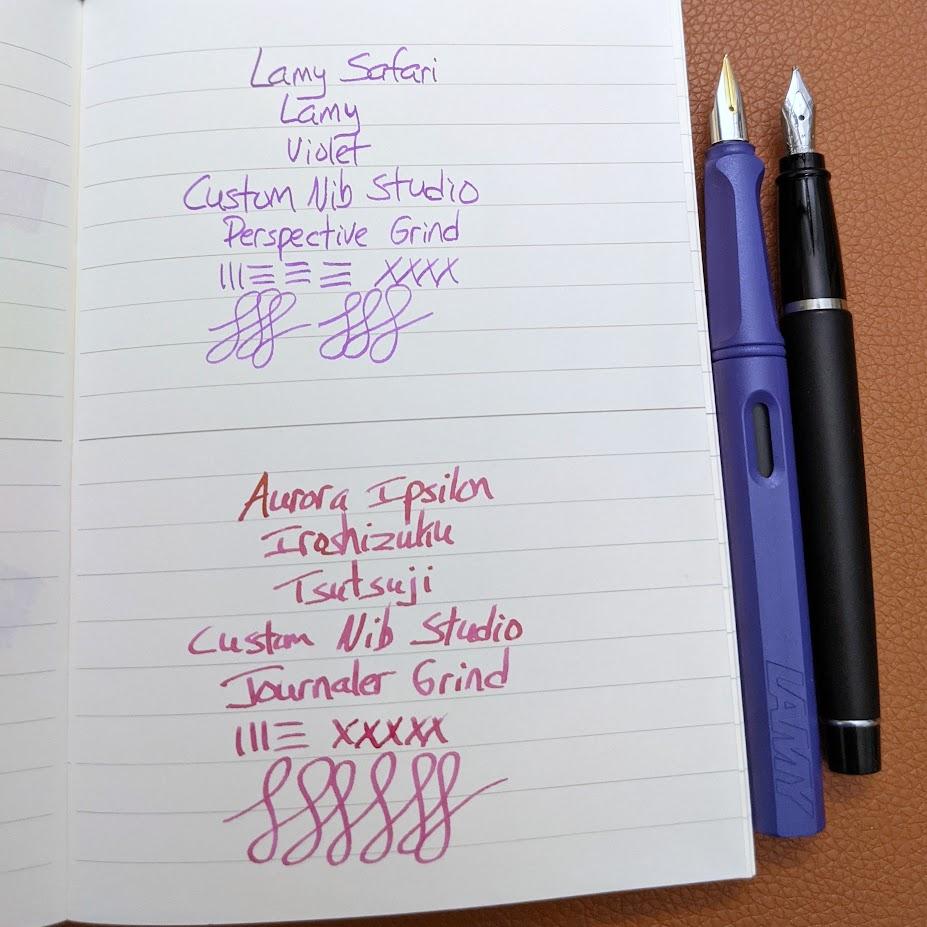 Lamy Safari
Lamy
Violet
Custom Nib Studio
Perspective Grind
III XXXX
Aurora Ipsilon
Iroshizuku
Tsutsuji
Custom Nib Studio
Journaler Grind
III XXXXX
LAMY